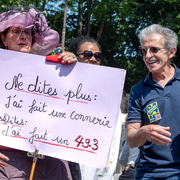 Ne dites plus:
J'ai fait une connerie
Dites:
J'ai fait un 493